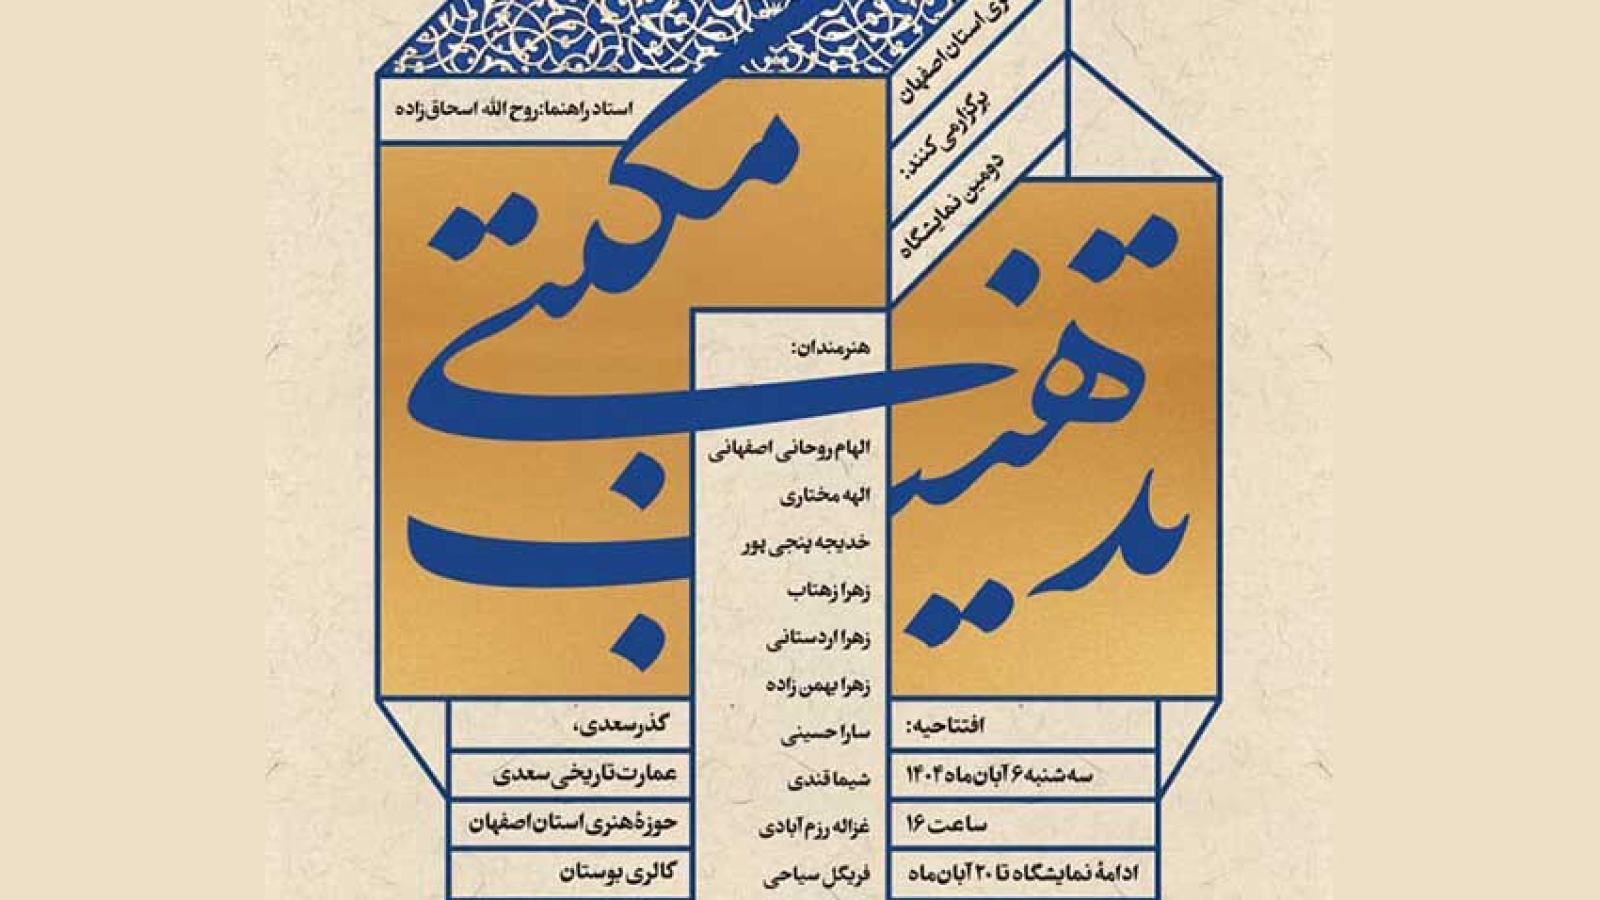 استان اصفهان
برگزار می کنند:
دومین نمایشگاه
تذهیب
مکتبی
استاد راهنما: روح الله اسحاق‌زاده
هنرمندان:
الهام روحانی اصفهانی
الهه مختاری
خدیجه پنجی پور
زهرا زهتاب
زهرا اردستانی
زهرا بهمن زاده
سارا حسینی
شیما قندی
غزاله رزم آبادی
فریگل سیاحی
افتتاحیه:
سه شنبه ۶ آبان ماه ۱۴۰۴
ساعت ۱۶
ادامهٔ نمایشگاه تا ۲۰ آبان‌ماه
گذر سعدی،
عمارت تاریخی سعدی
حوزهٔ هنری استان اصفهان
گالری بوستان